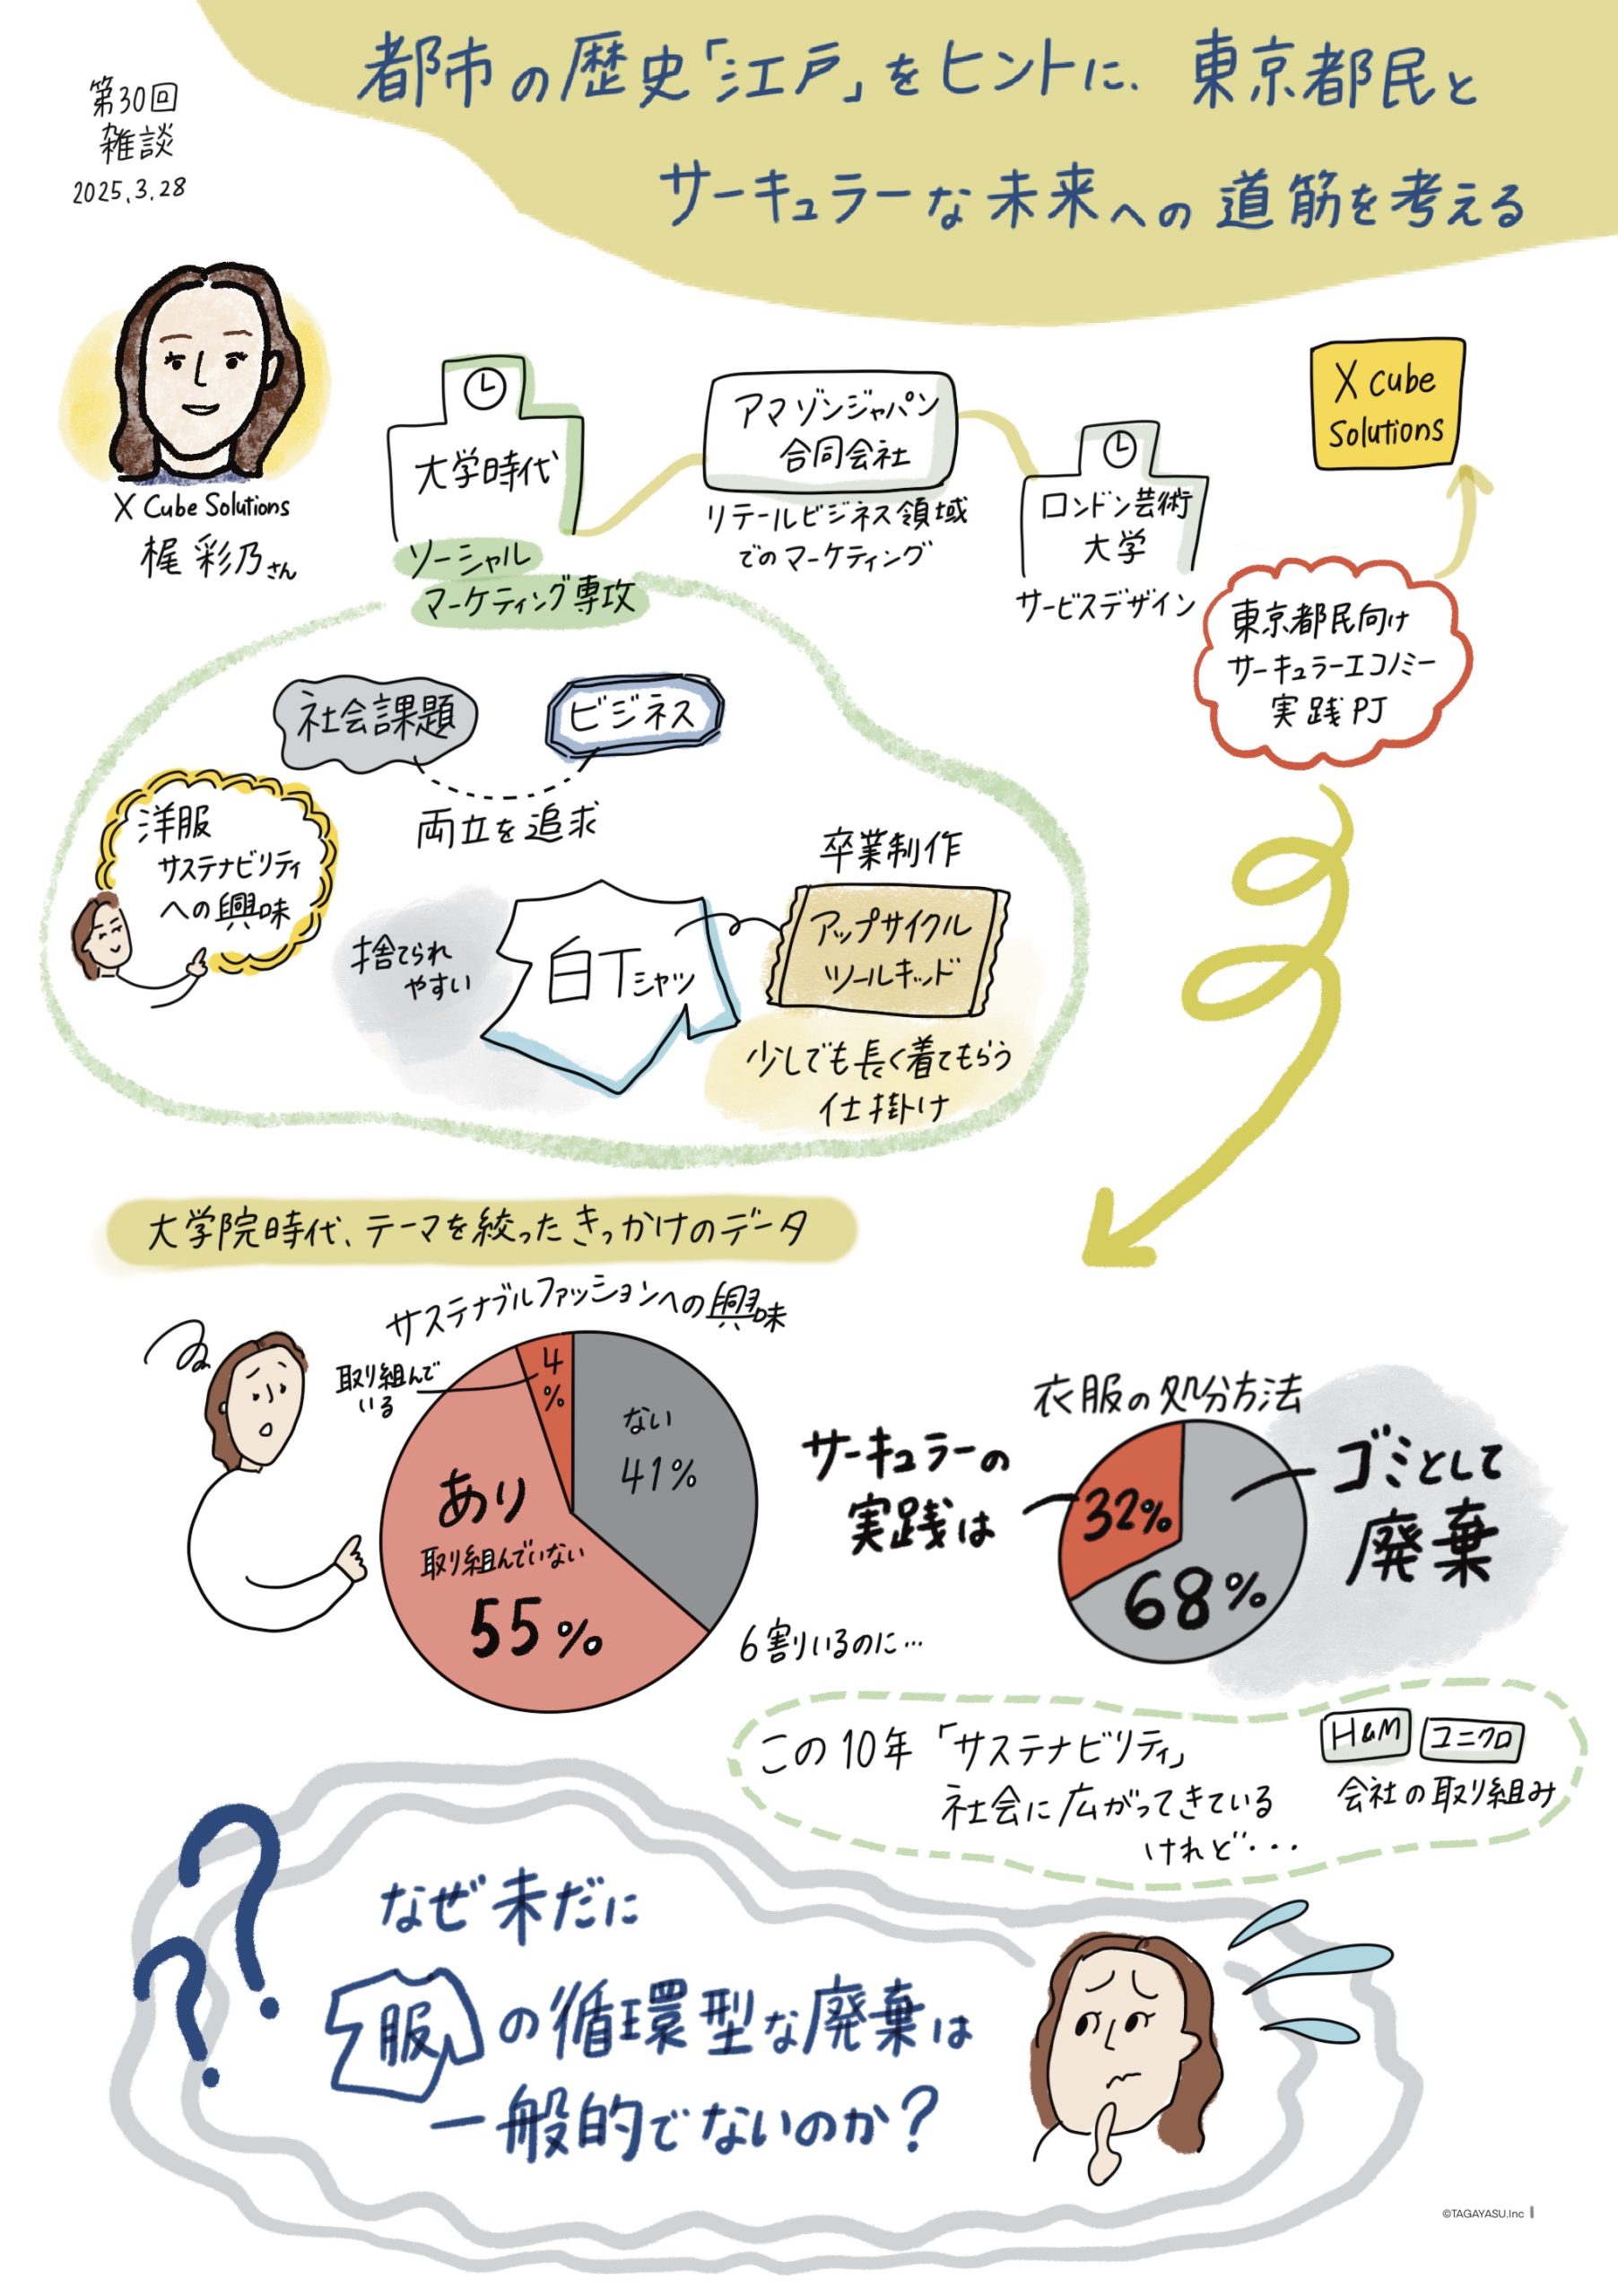 第30回
雑談
2025.3.28
都市の歴史「江戸」をヒントに、東京都民と
サーキュラーな未来への道筋を考える
X Cube Solutions
梶 彩乃さん
大学時代
ソーシャル
マーケティング専攻
アマゾンジャパン
合同会社
リテールビジネス領域
でのマーケティング
ロンドン芸術
大学
サービスデザイン
東京都民向け
サーキュラーエコノミー
実践PJ
X cube
Solutions
社会課題
ビジネス
両立を追求
洋服
サステナビリティ
への興味
捨てられ
やすい
白Tシャツ
卒業制作
アップサイクル
ツールキッド
少しでも長く着てもらう
仕掛け
大学院時代、テーマを絞ったきっかけのデータ
サステナブルファッションへの興味
取り組んで
いる
4
%
ない
41%
あり
取り組んでいない
55%
6割りいるのに…
衣服の処分方法
サーキュラーの
実践は
32%
68%
ゴミとして
廃棄
この10年「サステナビリティ」
社会に広がってきている
けれど・・・
H&M
ユニクロ
会社の取り組み
??
なぜ未だに
服の循環型な廃棄は
一般的でないのか?
©TAGAYASU.Inc